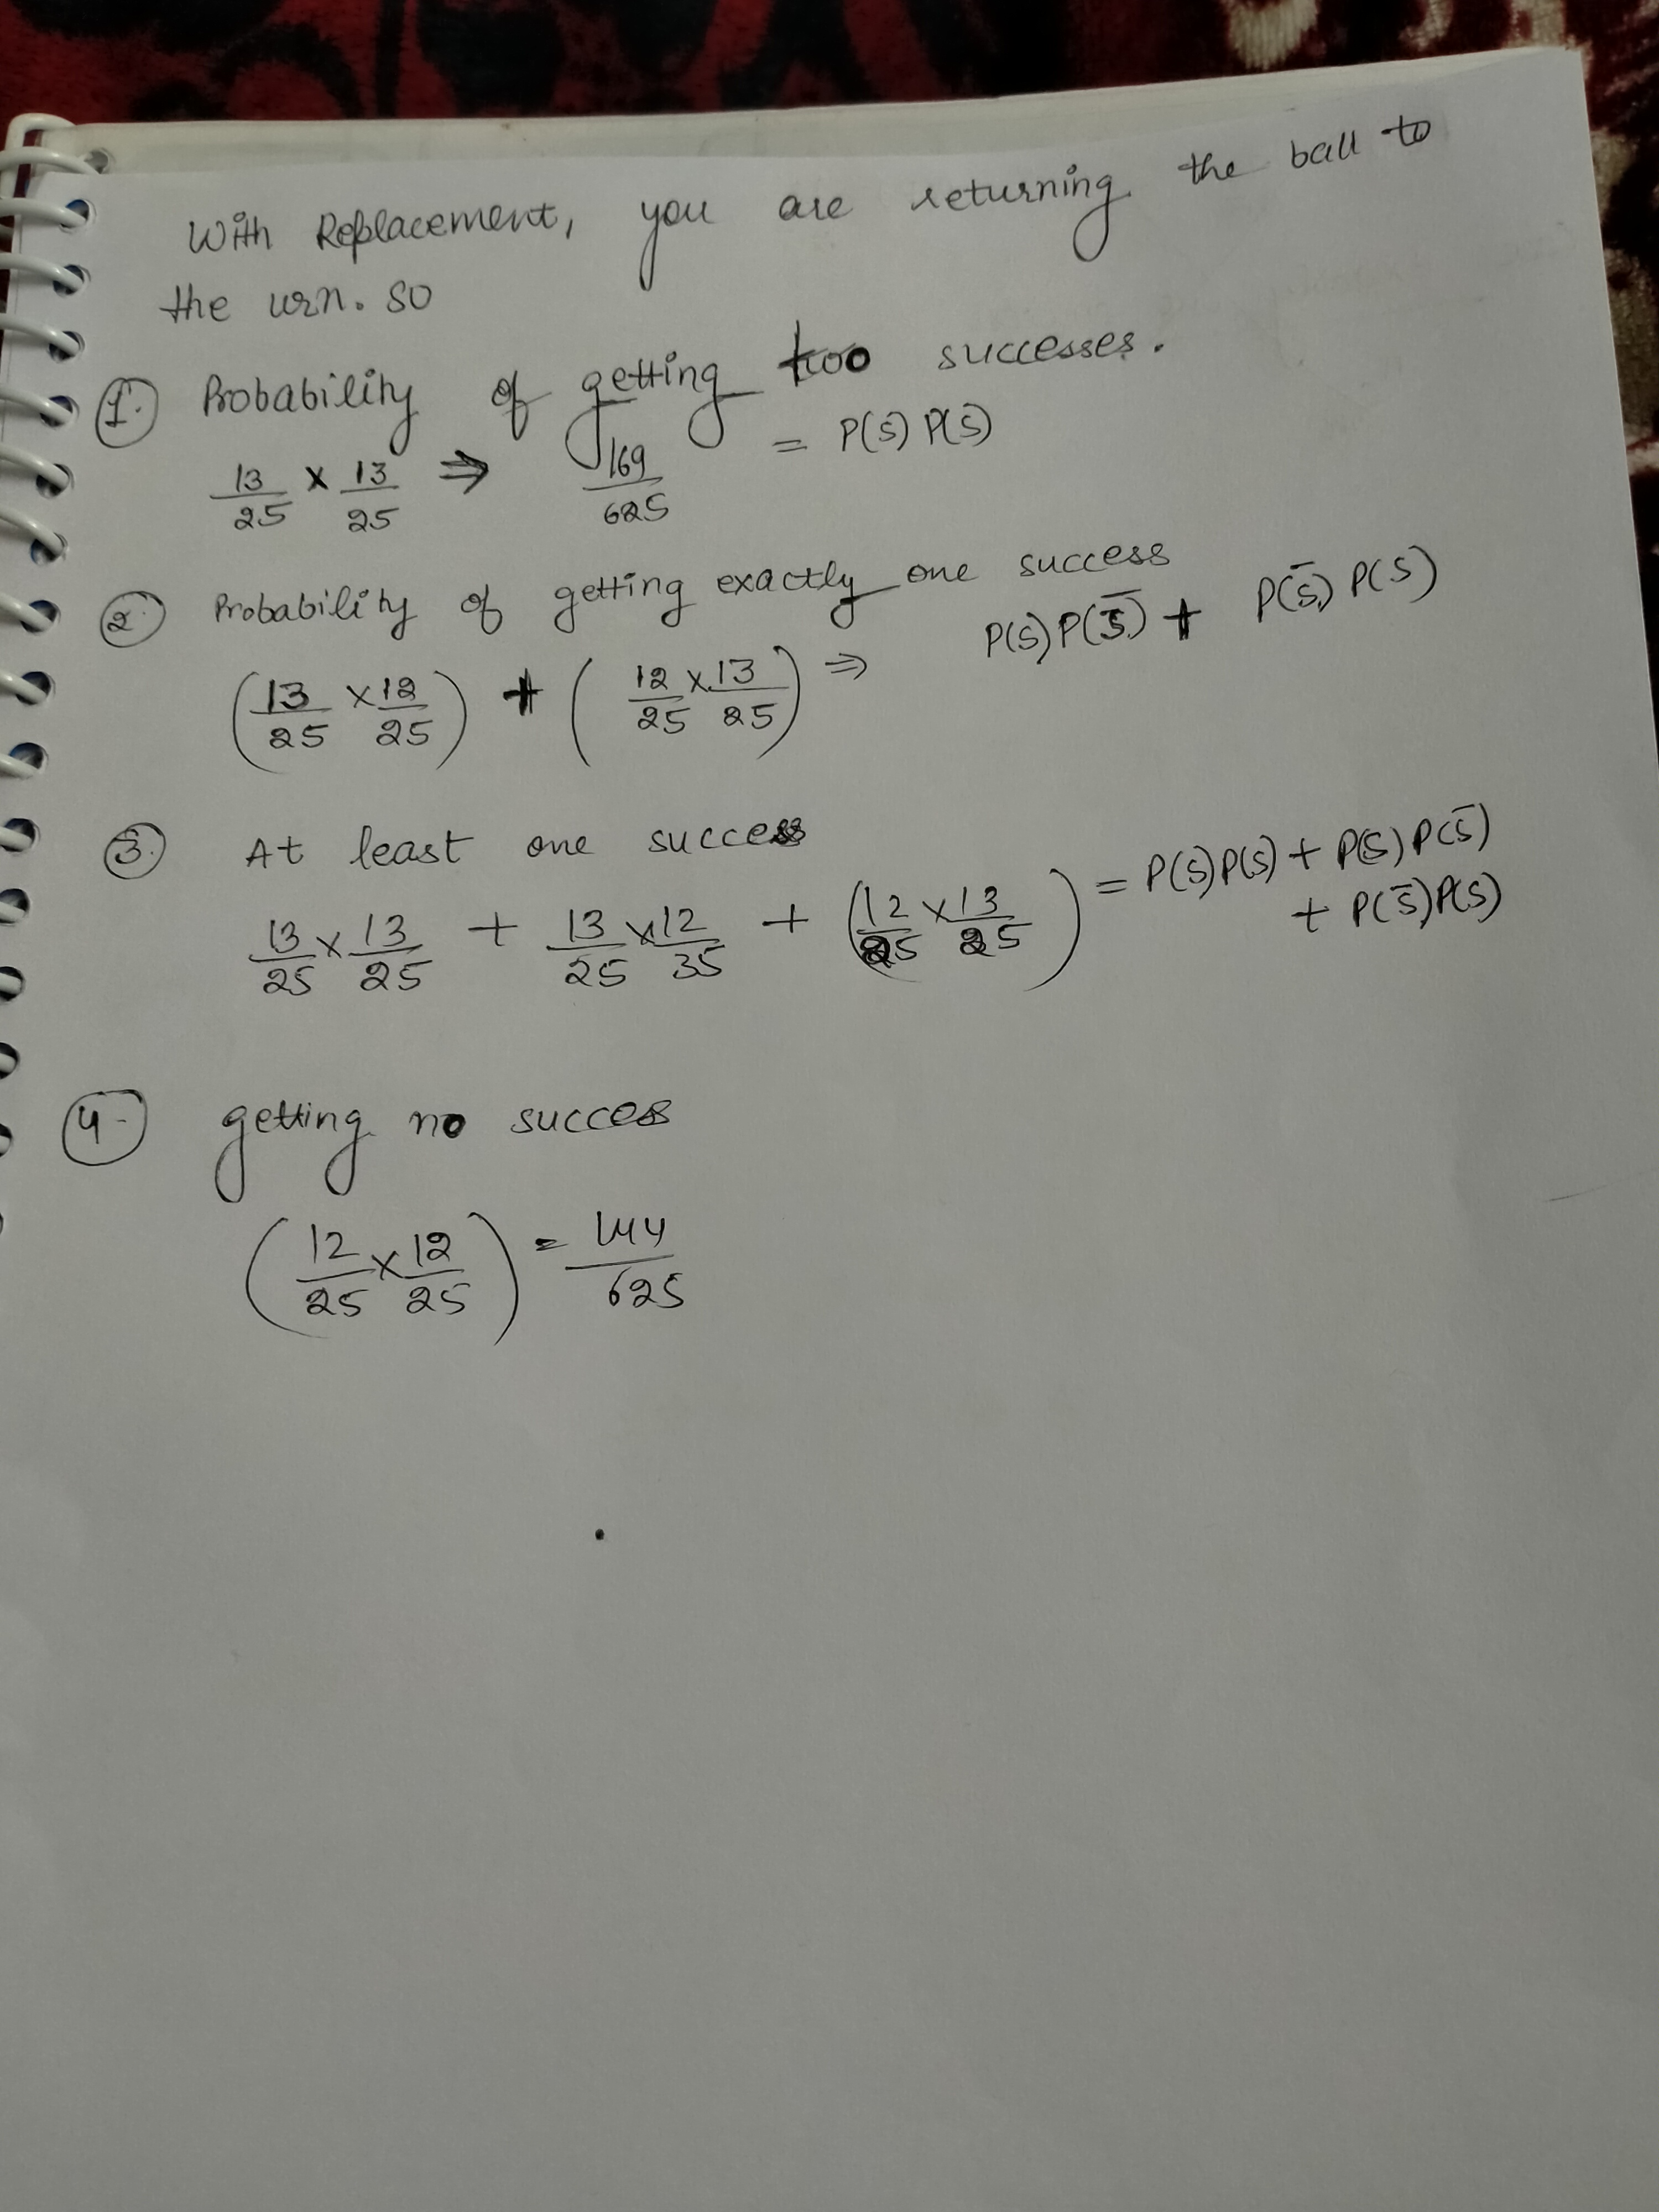 With Replacement, you are returning the ball to
the urn. so
1. Probability of getting two successes.
13/25 × 13/25 ⇒ 169/625 = P(S) P(S)
2. Probability of getting exactly one success
(13/25 × 12/25) + (12/25 × 13/25) ⇒ P(S) P(S̄) + P(S̄) P(S)
3. At least one success
13/25 × 13/25 + 13/25 × 12/35 + (12/25 × 13/25) = P(S) P(S) + P(S) P(S̄)
+ P(S̄) P(S)
4. getting no success
(12/25 × 12/25) = 144/625